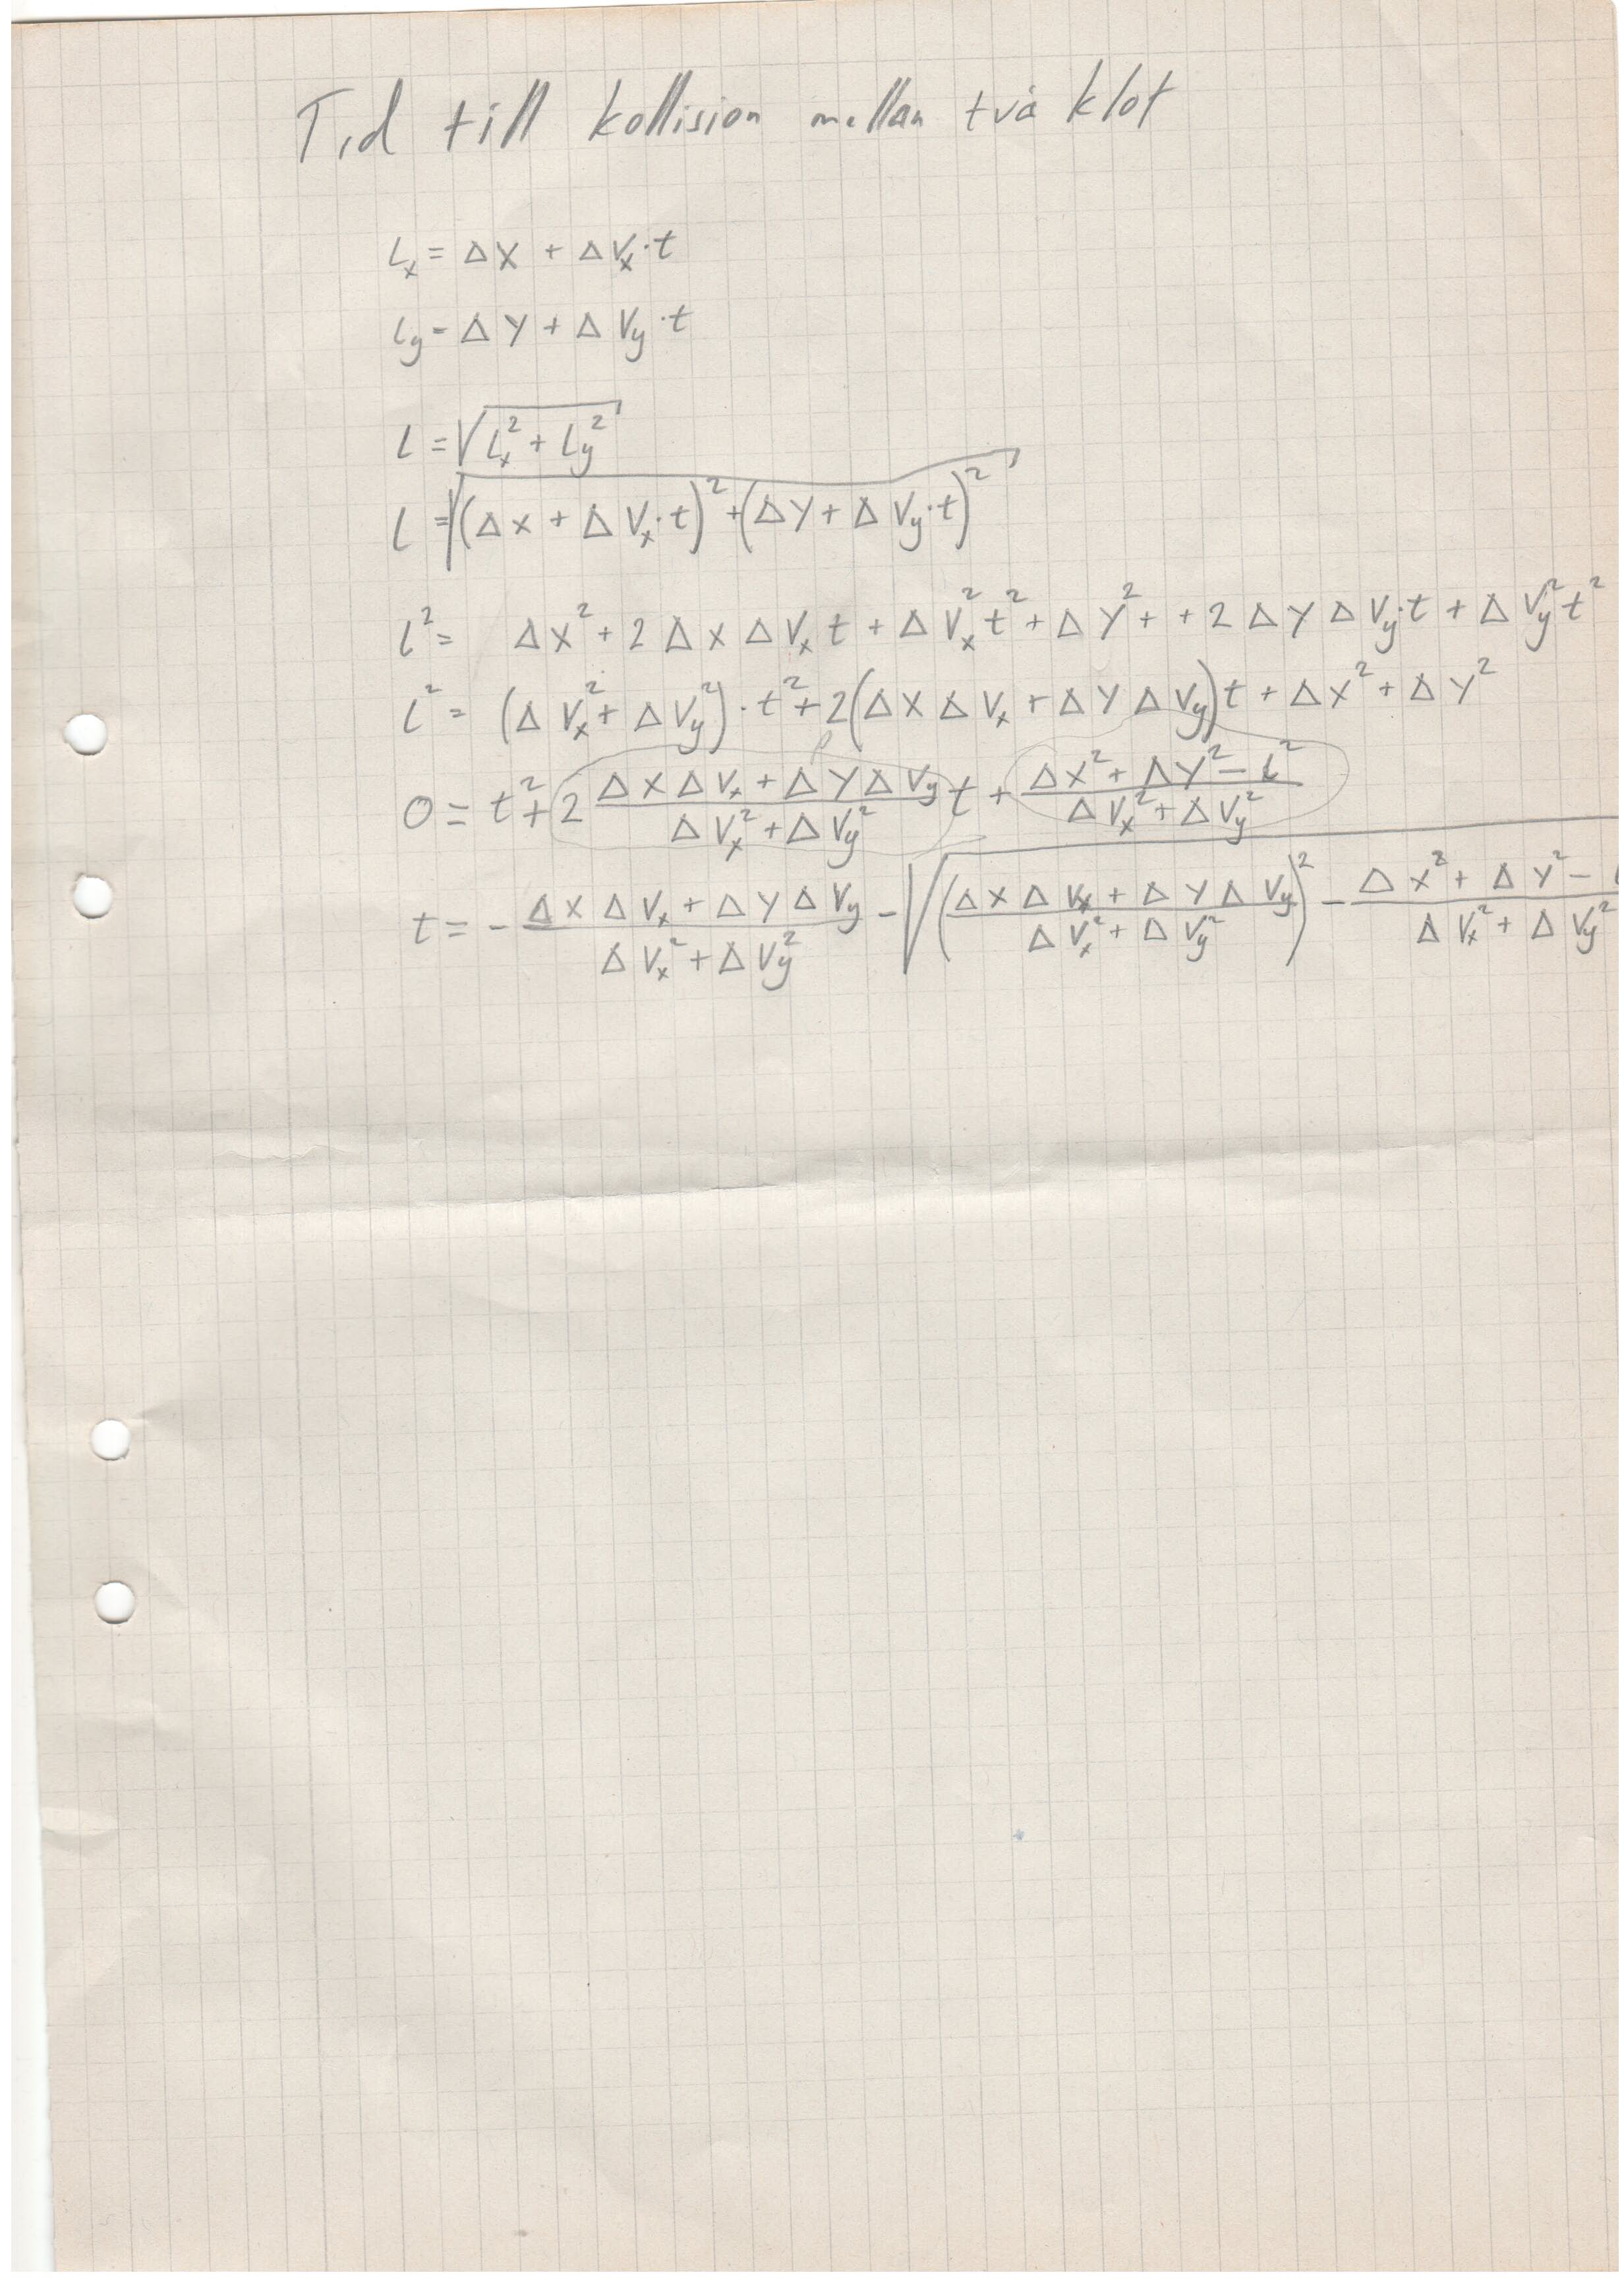 Tid till kollision mellan två klot
L_x = ΔX + ΔV_x·t
L_y = ΔY + ΔV_y·t
L = √(L_x² + L_y²)
L = √((Δx + ΔV_x·t)² + (ΔY + ΔV_y·t)²)
L² = Δx² + 2ΔxΔV_x t + ΔV_x² t² + ΔY² + + 2ΔYΔV_y·t + ΔV_y² t²
L² = (ΔV_x² + ΔV_y²)·t² + 2(ΔXΔV_x + ΔYΔV_y)t + Δx² + ΔY²
0 = t² + 2 (ΔXΔV_x + ΔYΔV_y)/(ΔV_x² + ΔV_y²) t + (ΔX² + ΔY² − L²)/(ΔV_x² + ΔV_y²)
t = − (ΔXΔV_x + ΔYΔV_y)/(ΔV_x² + ΔV_y²) − √(((ΔXΔV_x + ΔYΔV_y)/(ΔV_x² + ΔV_y²))² − (Δx² + ΔY² −)/(ΔV_x² + ΔV_y²))